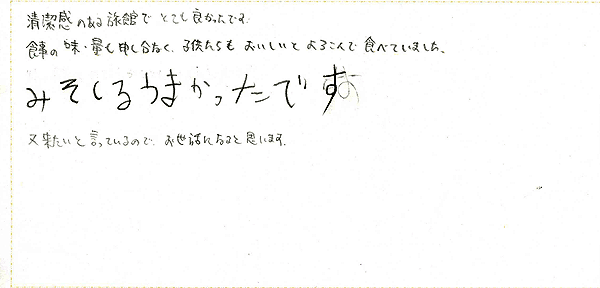 清潔感のある旅館でとても良かったです。
食事の味・量も申し分なく、子供たちもおいしいとよろこんで食べていました。
みそしるうまかったです
又来たいと言っているので、お世話になると思います。